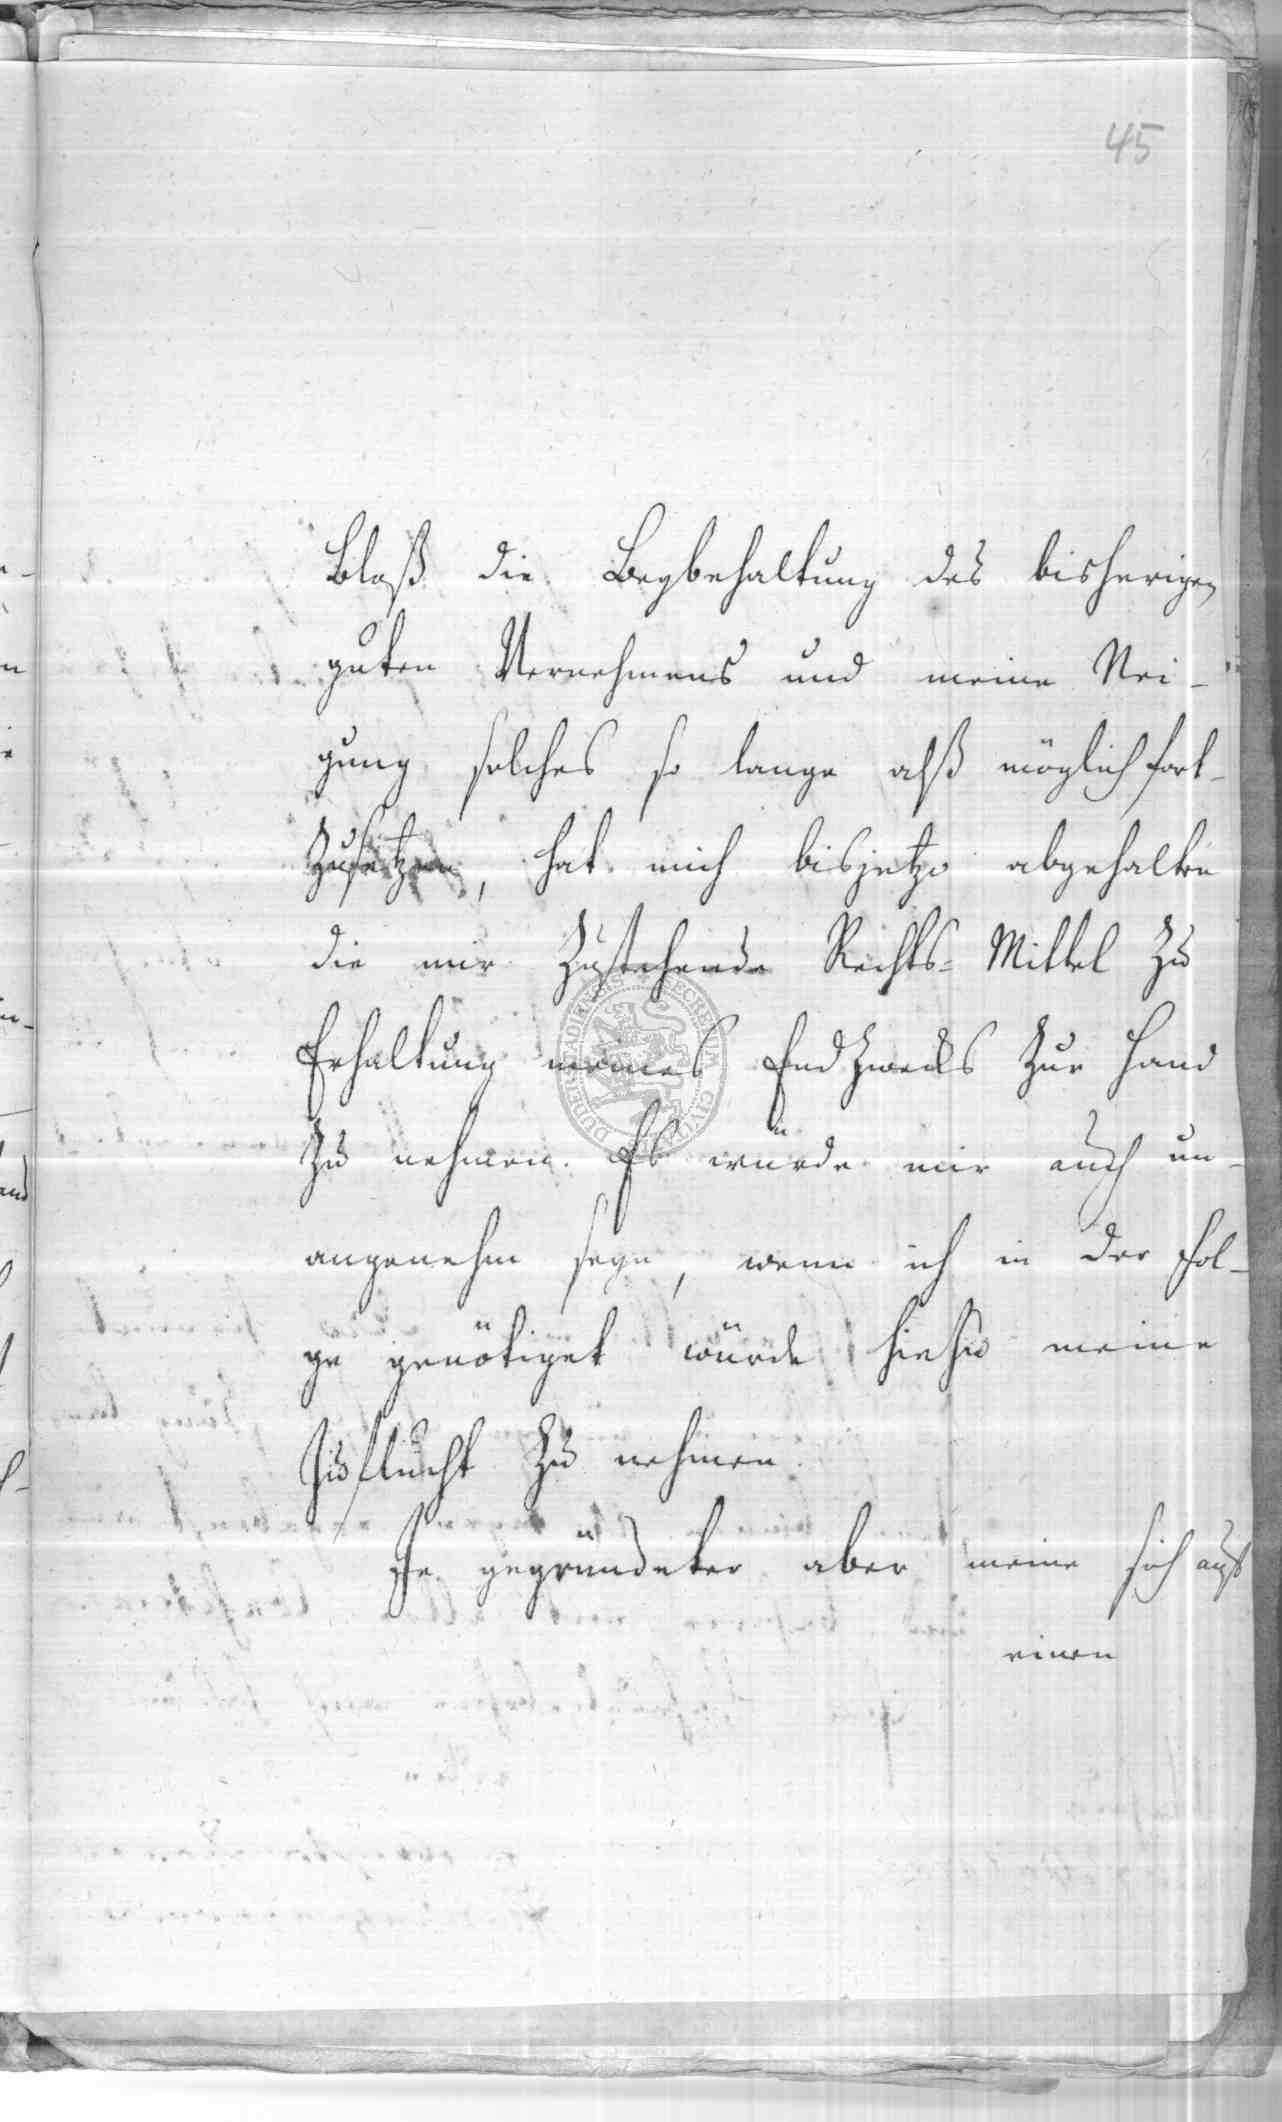 45
Bloß die Beybehaltung des bisherigen
guten Vernehmens und meine Nei-
gung solches so lange alß möglich fort-
zusetzen, hat mich bisjetzo abgehalten
die mir zustehende Rechts-Mittel zu
Erhaltung meines Endzwecks zur Hand
zu nehmen. Es würde mir auch un-
angenehm seyn, wenn ich in der Fol-
ge genötiget würde hiezu meine
Zuflucht zu nehmen.
Je gegründeter aber meine sich auf
einen